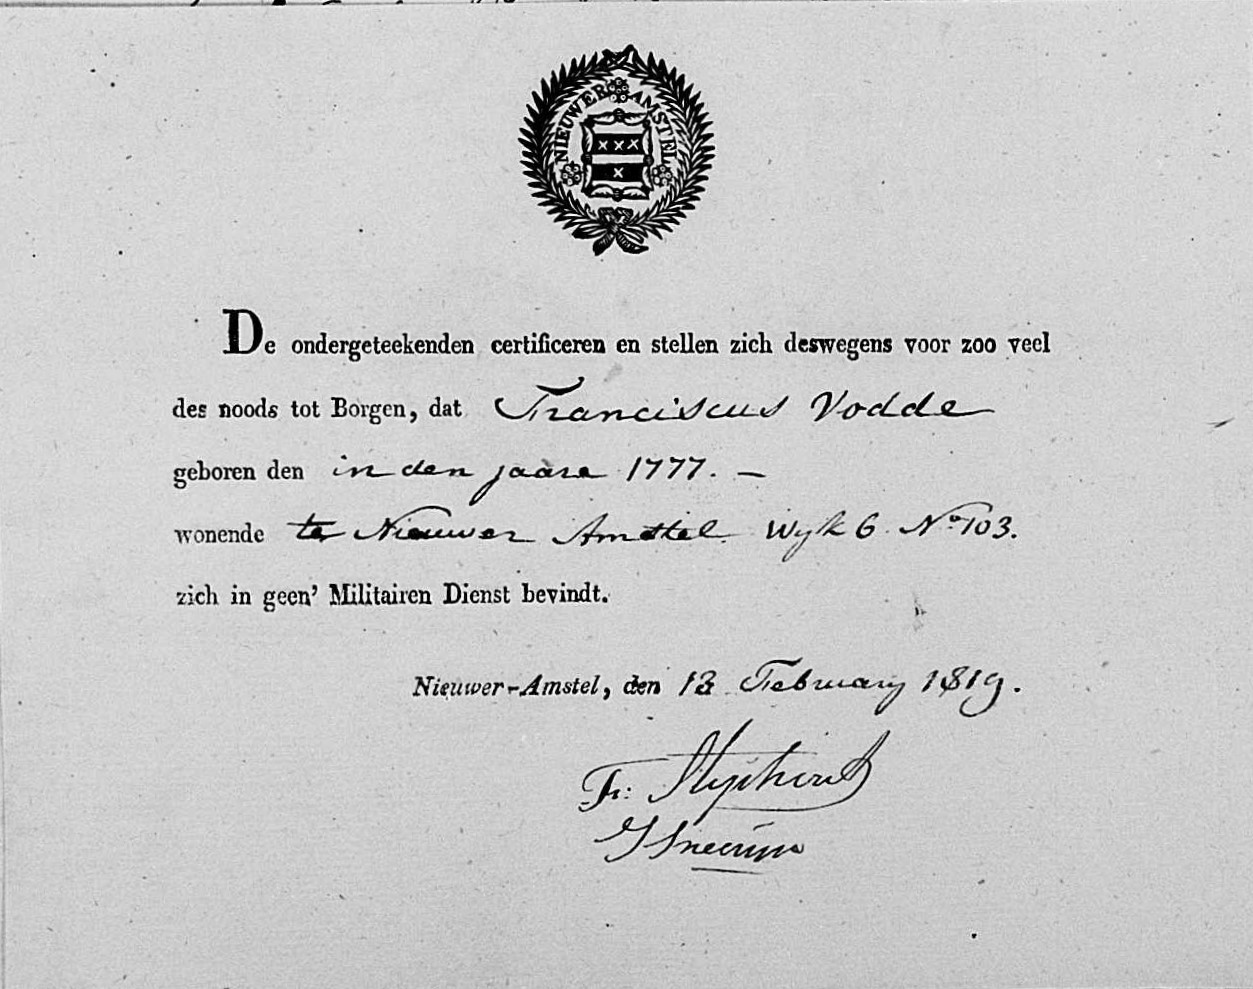 NIEUWER AMSTEL
De ondergeteekenden certificeren en stellen zich deswegens voor zoo veel
des noods tot Borgen, dat Franciscus Vodde
geboren den in den jaare 1777. —
wonende te Nieuwer Amstel Wyk 6 No 103.
zich in geen' Militairen Dienst bevindt.
Nieuwer-Amstel, den 13 February 1819.
Fr: